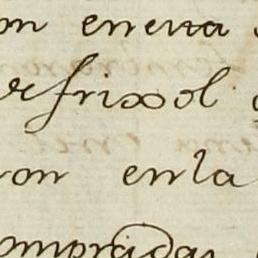 on enerra
refrixol
on enla
ompradas